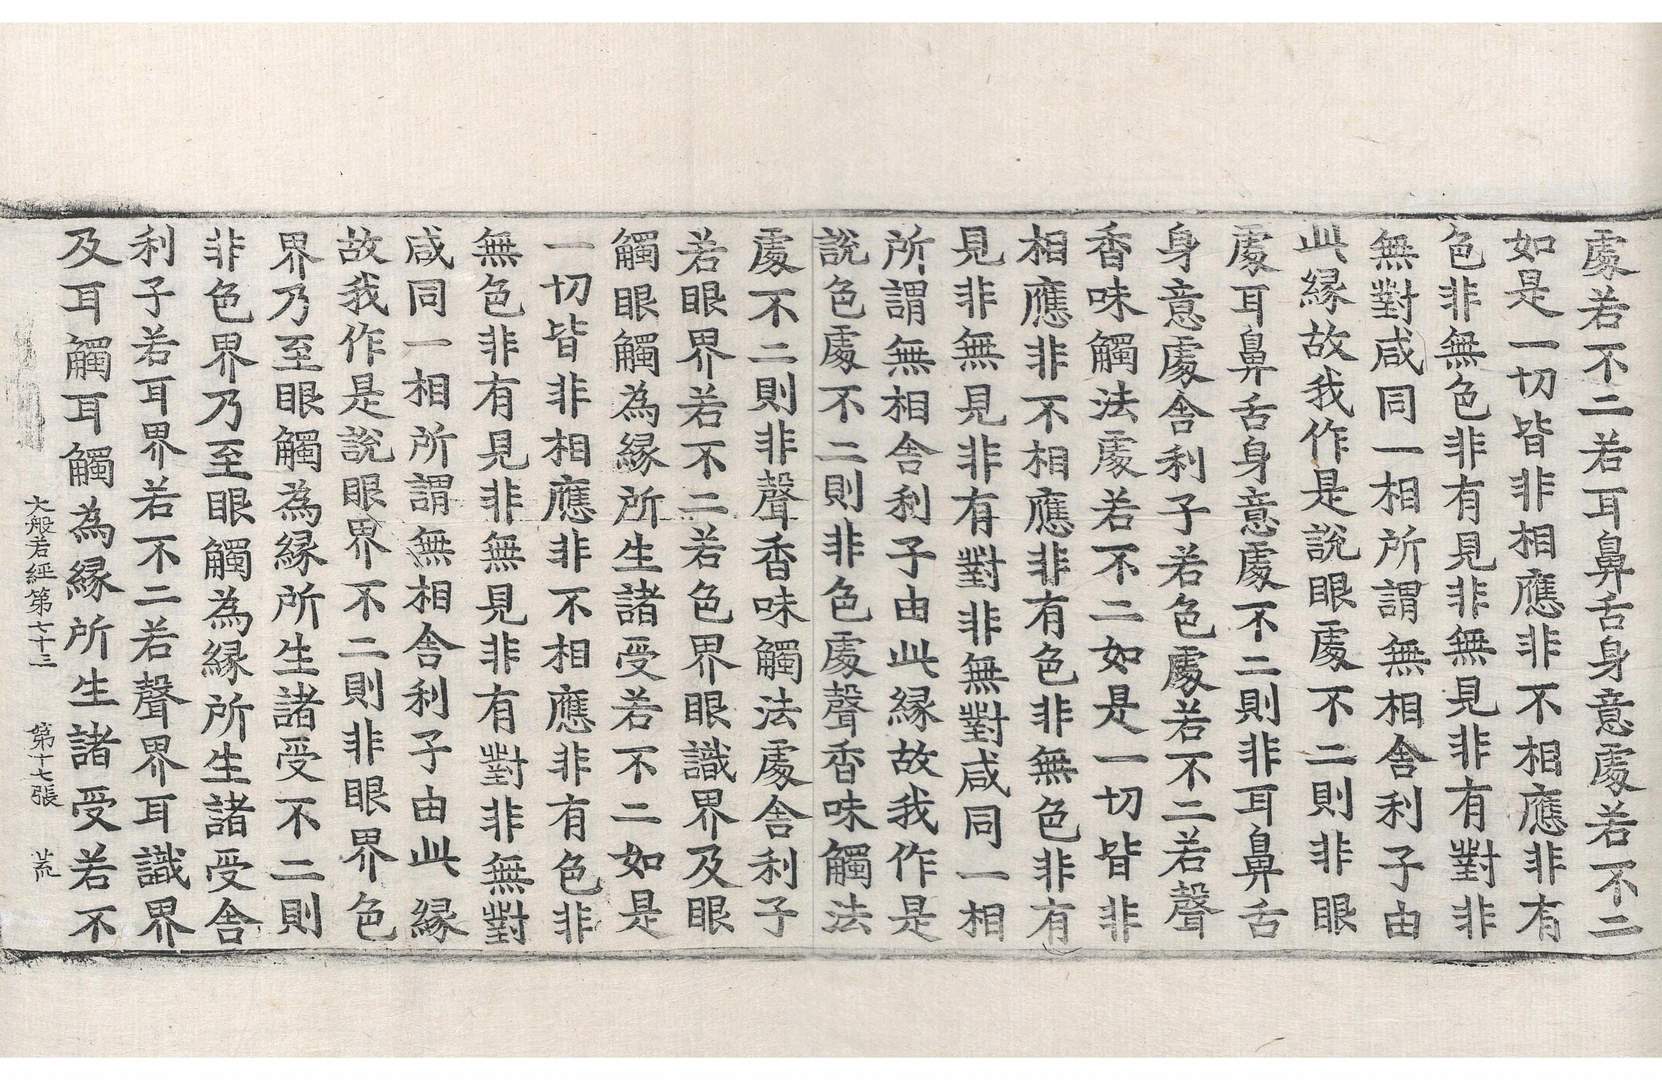 處若不二若耳鼻舌身意處若不二
如是一切皆非相應非不相應非有
色非無色非有見非無見非有對非
無對咸同一相所謂無相舍利子由
此緣故我作是說眼處不二則非眼
處耳鼻舌身意處不二則非耳鼻舌
身意處舍利子若色處若不二若聲
香味觸法處若不二如是一切皆非
相應非不相應非有色非無色非有
見非無見非有對非無對咸同一相
所謂無相舍利子由此緣故我作是
說色處不二則非色處聲香味觸法
處不二則非聲香味觸法處舍利子
若眼界若不二若色界眼識界及眼
觸眼觸為緣所生諸受若不二如是
一切皆非相應非不相應非有色非
無色非有見非無見非有對非無對
咸同一相所謂無相舍利子由此緣
故我作是說眼界不二則非眼界色
界乃至眼觸為緣所生諸受不二則
非色界乃至眼觸為緣所生諸受舍
利子若耳界若不二若聲界耳識界
及耳觸耳觸為緣所生諸受若不
大般若經第七十三 第十七張 荒